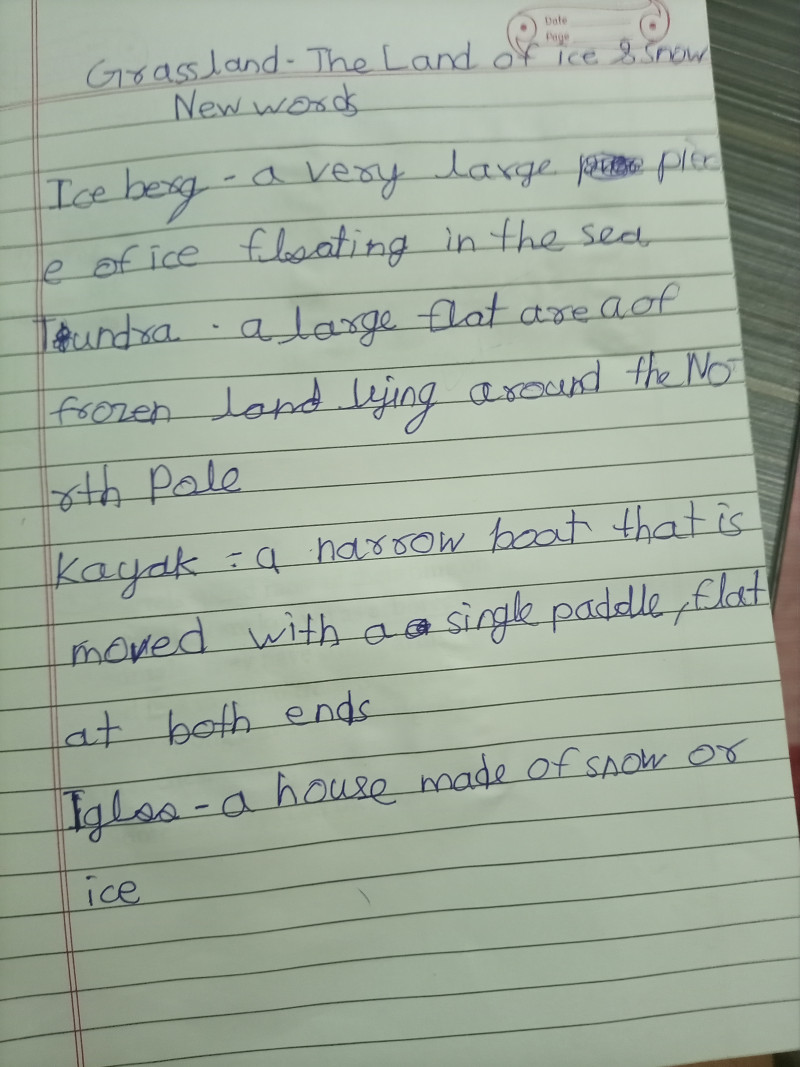 Date
Page
Grassland - The Land of ice & snow
New words
Ice berg - a very large piec
e of ice floating in the sea
Tundra - a large flat area of
frozen land lying around the No
rth Pole
Kayak - a narrow boat that is
moved with a single paddle, flat
at both ends
Igloo - a house made of snow or
ice